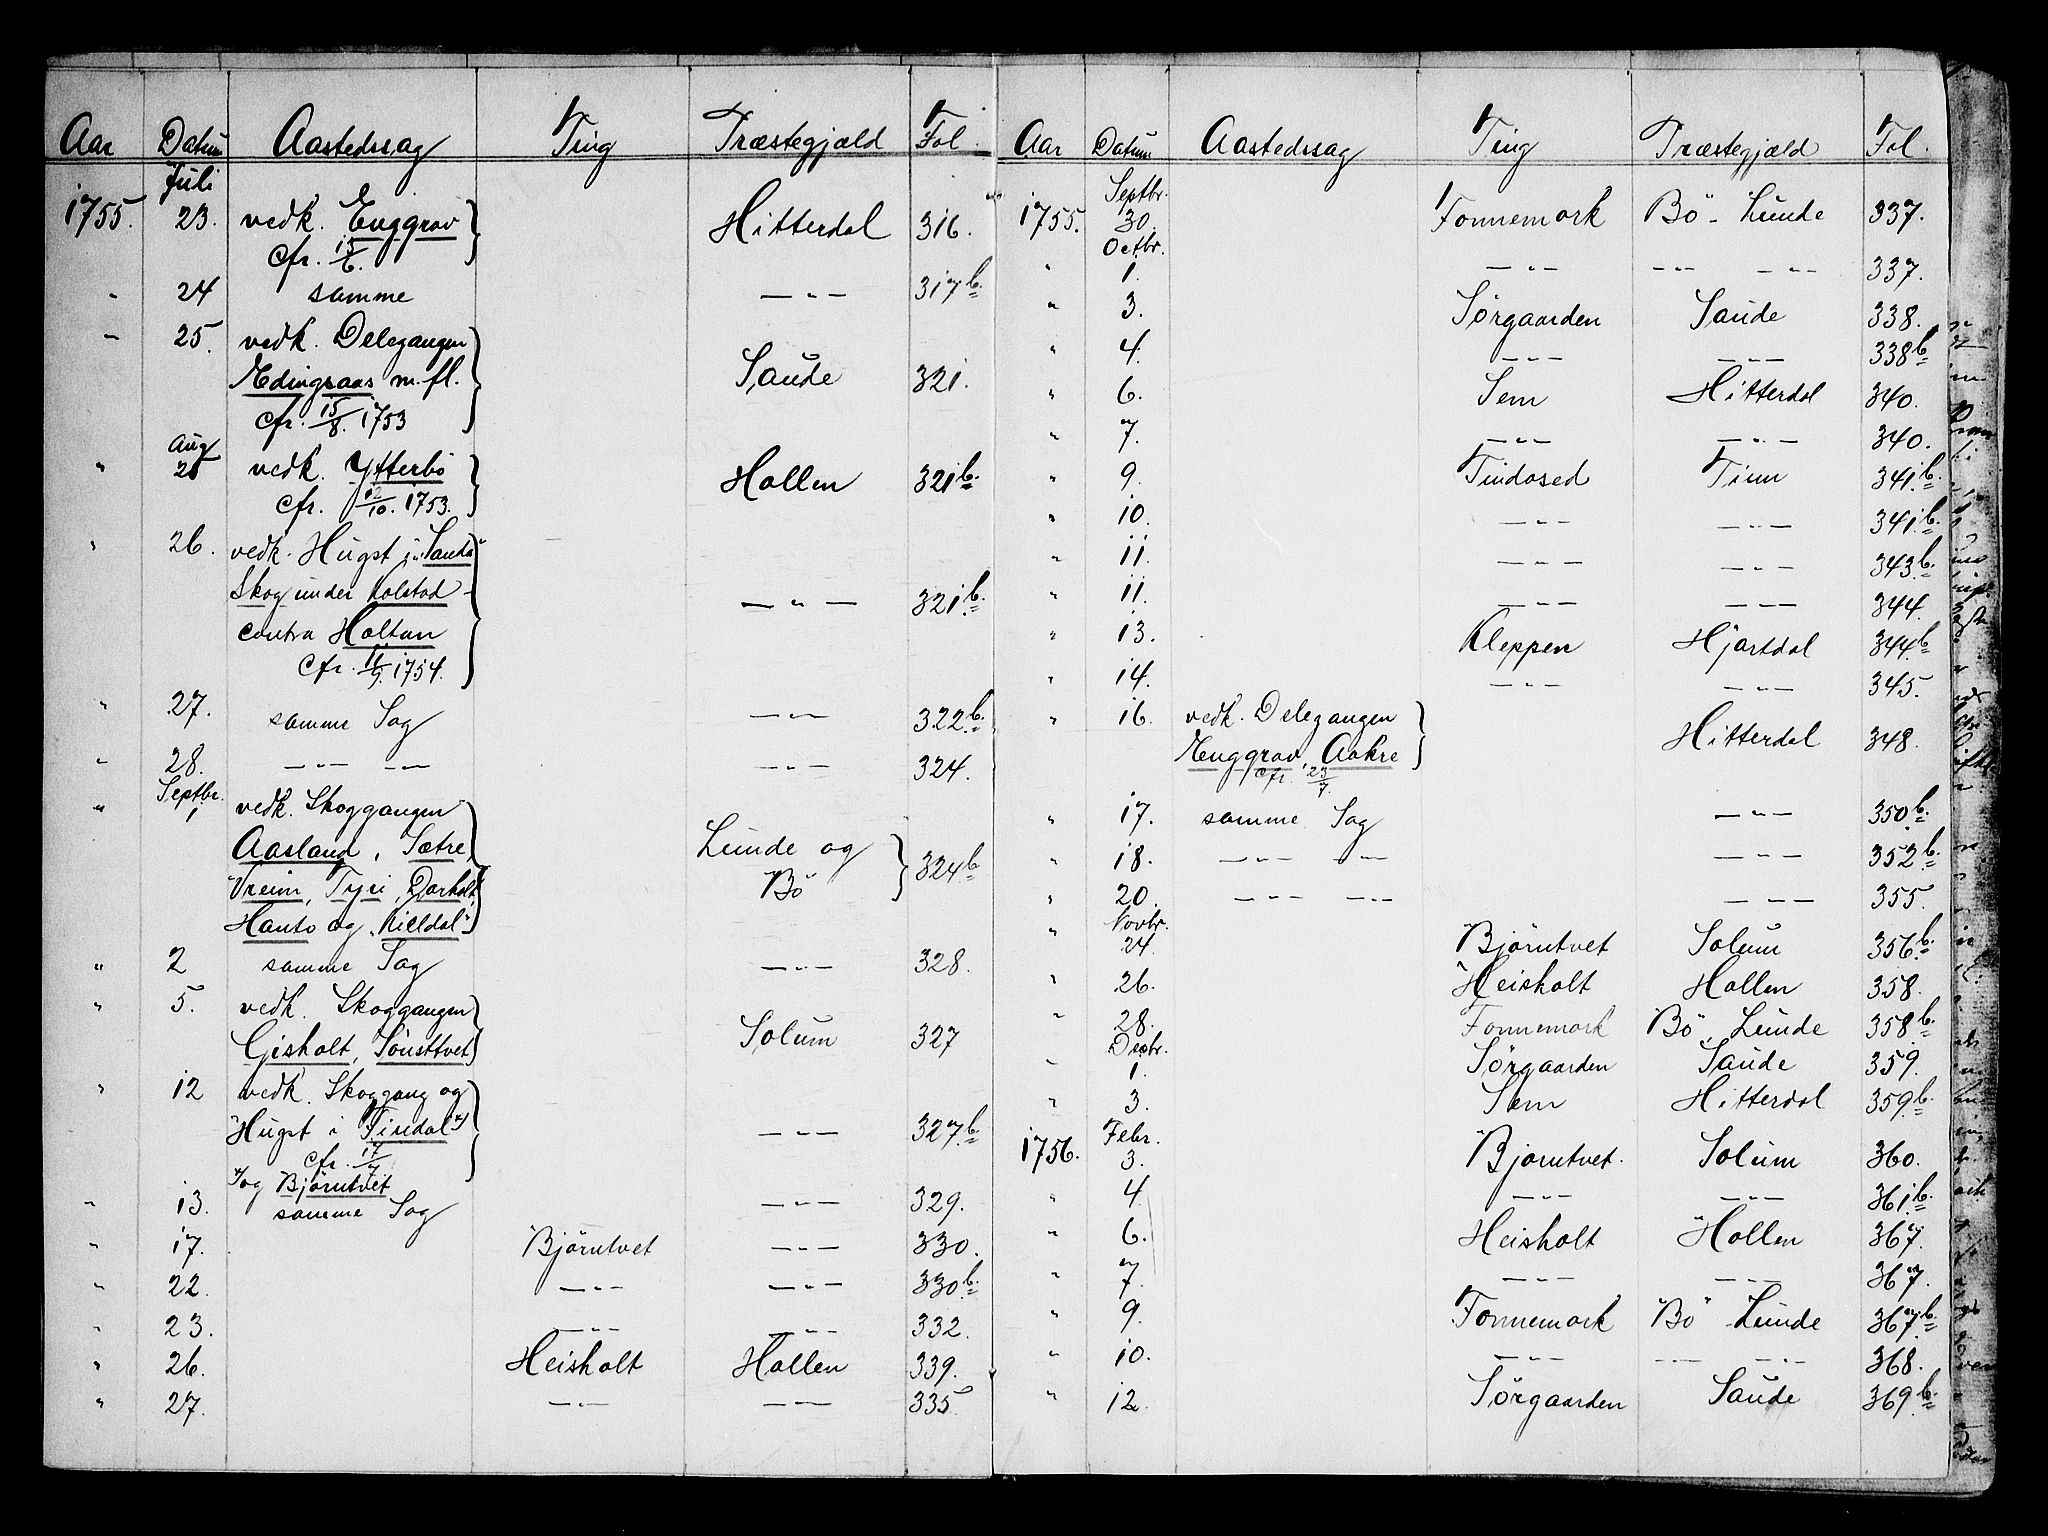 Aar Datum Aastedssag Ting Præstegjæld Fol.
Juli
1755. 23. vedk. Enggrav Hitterdal 316.
cfr. 13/6.
" 24 samme — " — 317b.
" 25. vedk. Delegangen
Edingsaas m.fl. Saude 321.
cfr. 15/8. 1753
Aug
" 25 vedk. Ytterbö Hollen 321b.
cfr. 12/10. 1753.
" 26. vedk. Hugst i "Sanda"
Skog under Kolstad — " — 321b.
contra Holtan
cfr. 11/9. 1754.
" 27. samme Sag — " — 322b.
" 28. — " — — " — — " — 324.
Septbr.
" 1 vedk. Skoggangen
Aasland, Sætre, Lunde og
Vreim, Tyri, Darholt, Bö 324b
Hanto og "Kieldal"
" 2 samme Sag — " — 328.
" 5. vedk. Skoggangen
Gisholt, Tönsttvet Solum 327
" 12 vedk. Skoggang og
Hugst i Findal — " — 327b.
cfr. 17/7
og Björntvet
" 13. samme Sag — " — 329.
" 17. Björntvet — " — 330.
" 22. — " — — " — 330b.
" 23. — " — — " — 332.
" 26. Heisholt Hollen 339.
" 27. — " — — " — 335.
Aar Datum Aastedssag Ting Præstegjæld Fol.
Septbr.
1755. 30. Fonnemork Bö - Lunde 337.
Octbr.
" 1. — " — — " — — " — 337.
" 3. Sörgaarden Saude 338.
" 4. — " — — " — 338b.
" 6. Sem Hitterdal 340.
" 7. — " — — " — 340.
" 9. Tindosed Tinn 341b.
" 10. — " — — " — 341b.
" 11. — " — — " — 343b.
" 11. — " — — " — 344.
" 13. Kleppen Hjartdal 344b
" 14. — " — — " — 345.
" 16. vedk. Delegangen
Enggrav, Aakre Hitterdal 348.
cfr. 23/7.
" 17. samme Sag — " — 350b.
" 18. — " — — " — — " — 352b.
" 20. — " — — " — — " — 355.
Novbr.
" 24. Björntvet Solum 356b.
" 26. Heisholt Hollen 358.
" 28. Fonnemork Bö, Lunde 358b.
Decbr.
" 1. Sörgaarden Saude 359.
" 3. Sem Hitterdal 359b.
Febr.
1756. 3. Bjorntvet. Solum 360.
" 4. — " — — " — 361b.
" 6. Heisholt Hollen 367.
" 7. — " — — " — 367.
" 9. Fonnemork Bö - Lunde 367b.
" 10. — " — — " — — " — 368.
" 12. Sörgaarden Saude 369b.